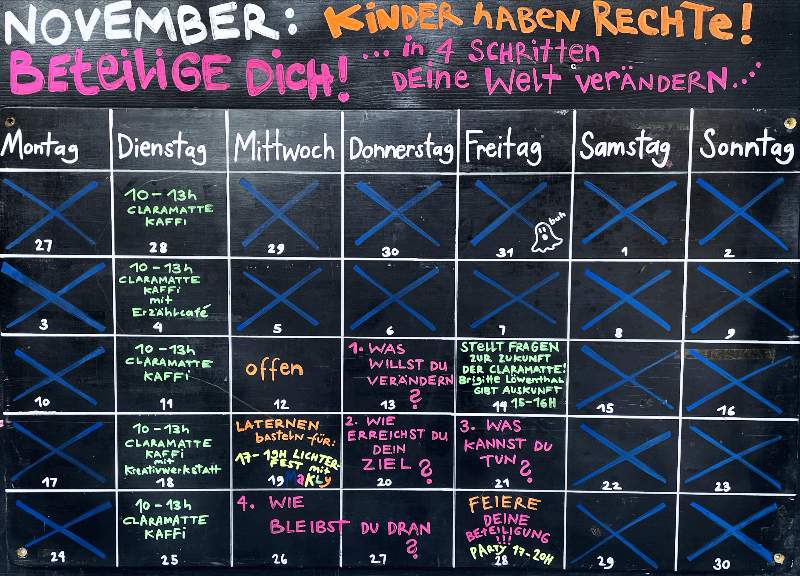 NOVEMBER: KINDER HABEN RECHTE!
BETEILIGE DICH! ... in 4 SCHRITTEN
DEINE WELT VERÄNDERN...
Montag Dienstag Mittwoch Donnerstag Freitag Samstag Sonntag
27
10-13h
CLARAMATTE
KAFFI
28
29
30
buh
31
1
2
3
10-13h
CLARAMATTE
KAFFI
mit
Erzählcafé
4
5
6
7
8
9
10
10-13h
CLARAMATTE
KAFFI
11
offen
12
1. WAS
WILLST DU
VERÄNDERN
?
13
STELLT FRAGEN
ZUR ZUKUNFT
DER CLARAMATTE!
Brigitte Löwenthal
GIBT AUSKUNFT
15-16H
14
15
16
17
10-13h
CLARAMATTE
KAFFI
mit
Kreativwerkstatt
18
LATERNEN
basteln für:
17-19H LICHTER-
FEST mit
MaKLy
19
2. WIE
ERREICHST DU
DEIN
ZIEL?
20
3. WAS
KANNST DU
TUN?
21
22
23
24
10-13h
CLARAMATTE
KAFFI
25
4. WIE
BLEIBST DU DRAN
?
26
27
FEIERE
DEINE
BETEILIGUNG
!!!
PARTY 17-20H
28
29
30